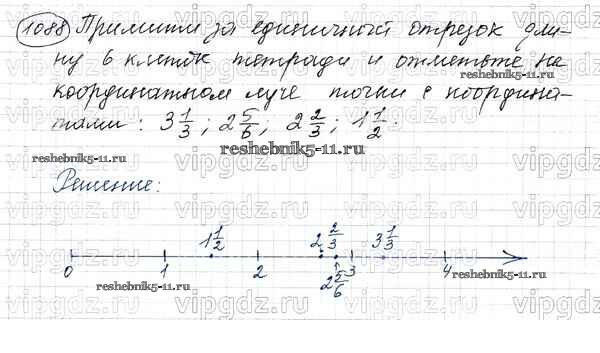 1088 Примите за единичный отрезок дли-
ну 6 клеток тетради и отметьте на
координатном луче точки с координа-
тами: 3 1/3; 2 5/6; 2 2/3; 1 1/2.
reshebnik5-11.ru
reshebnik5-11.ru
reshebnik5-11.ru
Решение:
1 1/2 2 2/3 3 1/3
0 1 2 3 4
2 5/6
reshebnik5-11.ru
reshebnik5-11.ru
vipgdz.ru